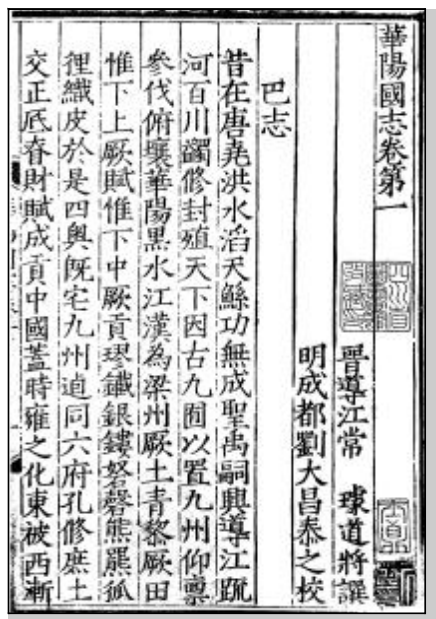 華陽國志卷第一
晉導江常 璩道將譔
明成都劉大昌泰之校
巴志
昔在唐堯洪水滔天鯀功無成聖禹嗣興導江疏
河百川蠲修封殖天下因古九囿以置九州仰禀
參伐俯壤華陽黑水江漢為梁州厥土青黎厥田
惟下上厥賦惟下中厥貢璆鐵銀鏤砮磬熊羆狐
狸織皮於是四奧既宅九州逌同六府孔修庶土
交正厎眘財賦成貢中國蓋時雍之化東被西漸